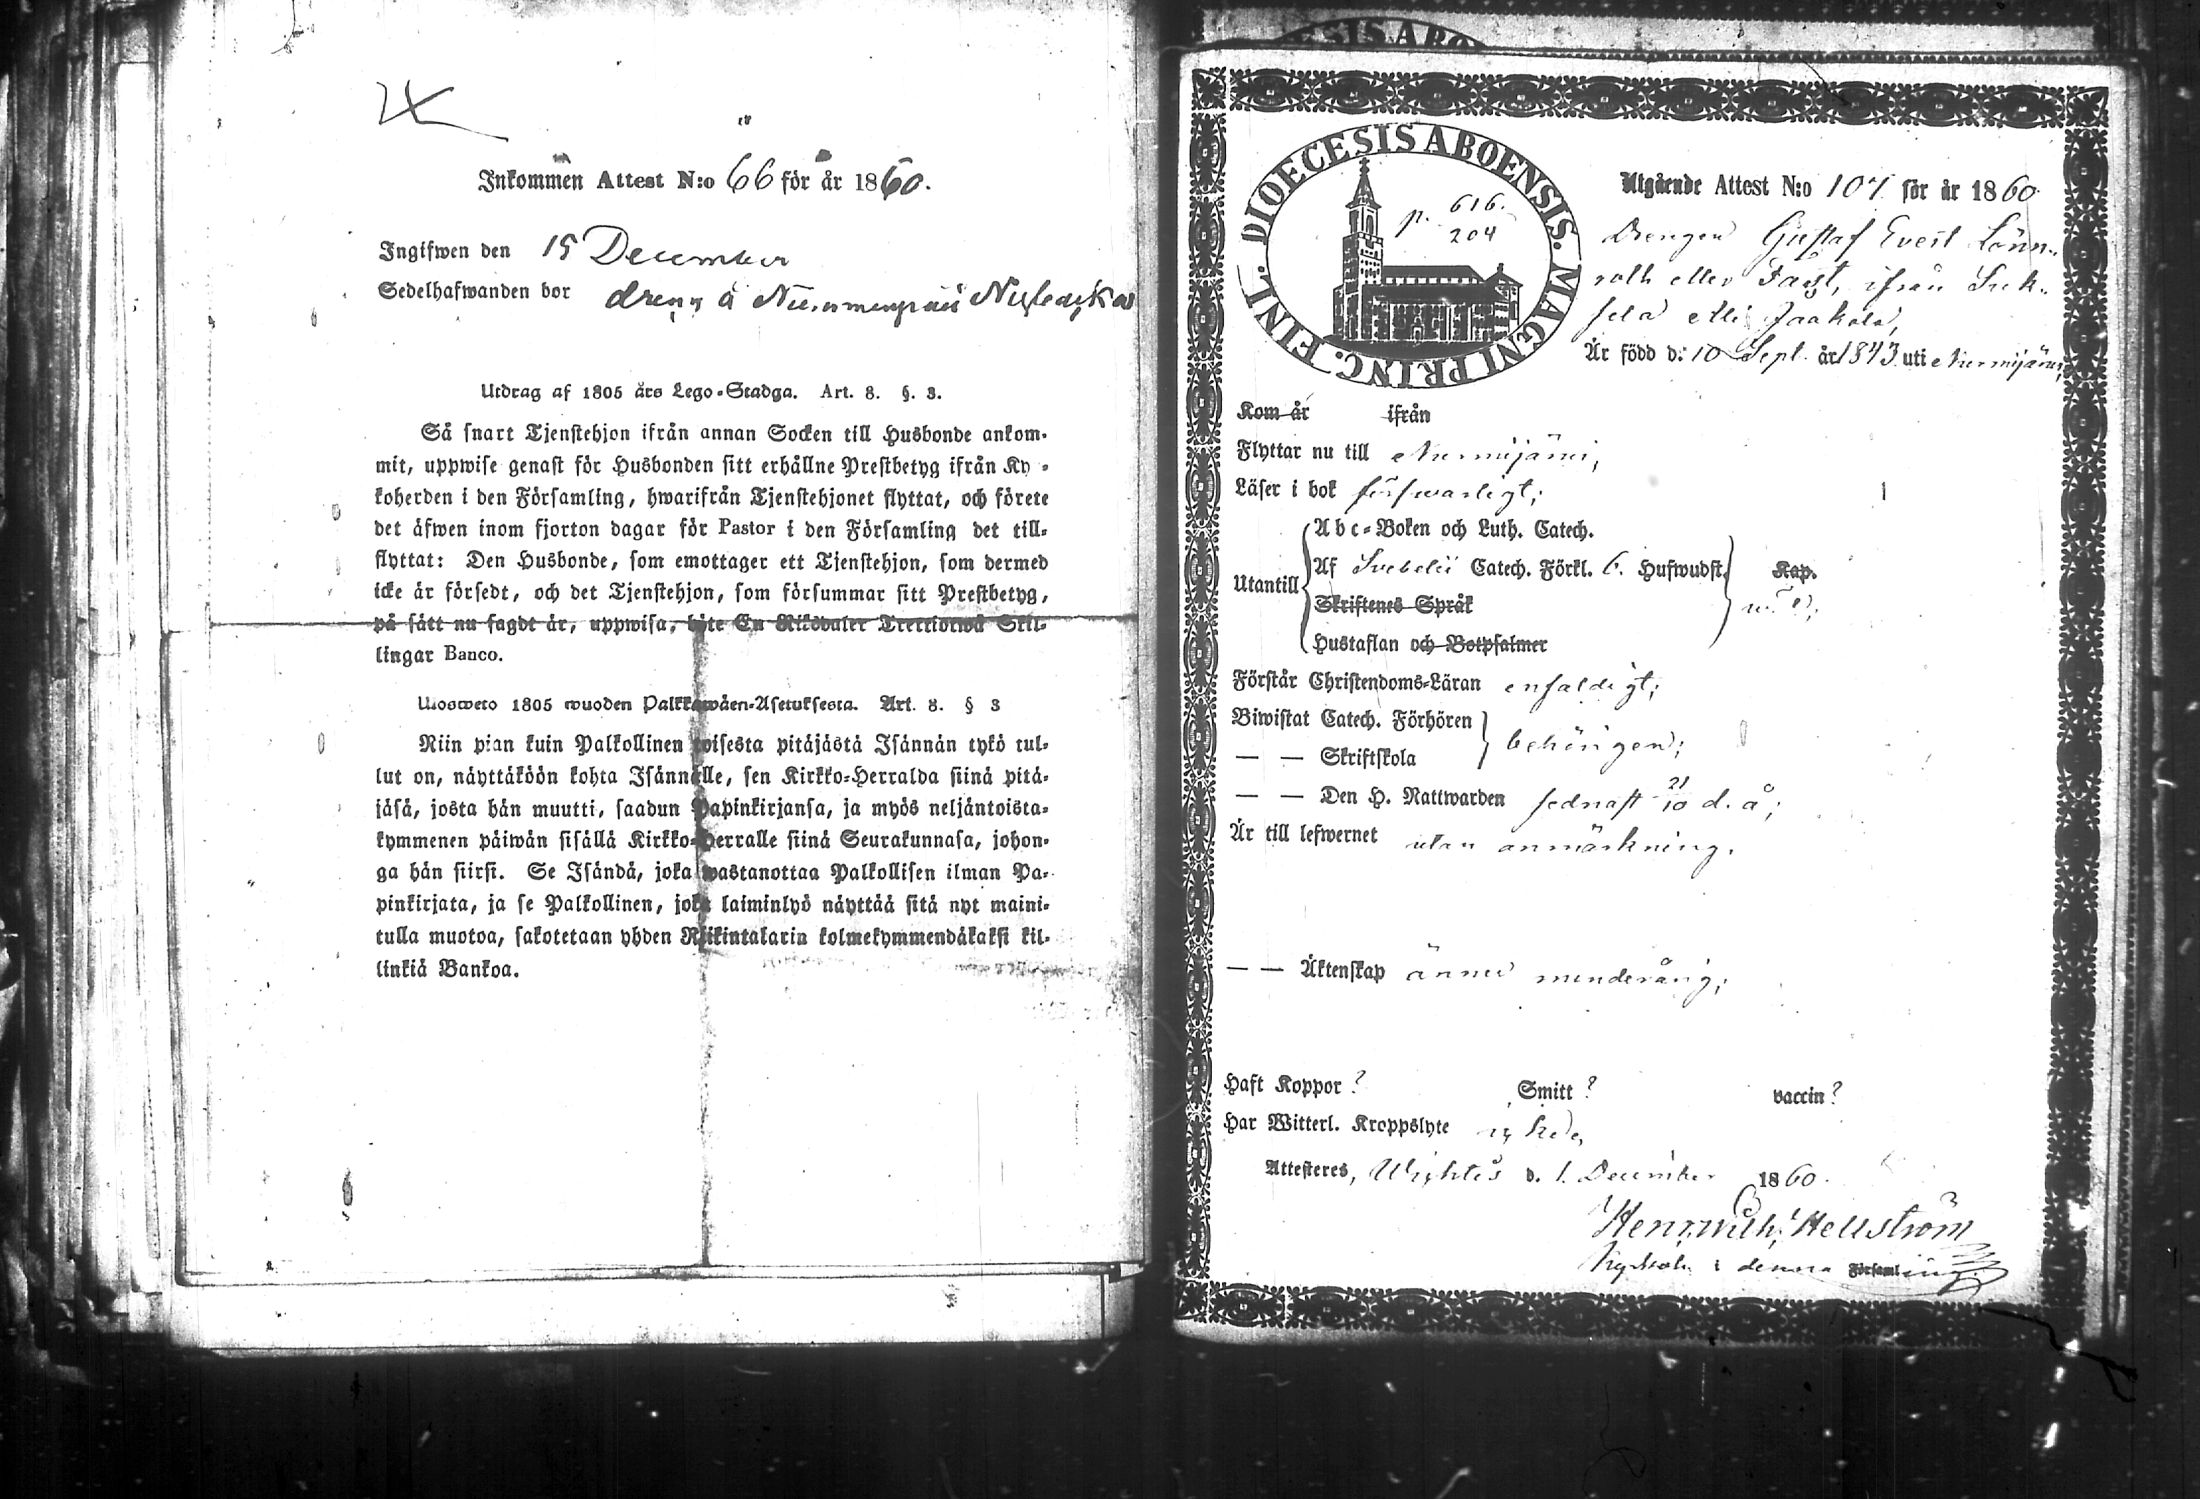 Inkommen Attest N:o 66 för år 1860.
Ingifwen den 15 December
Sedelhafwanden bor dreng å
Utdrag af 1805 års Lego-Stadga. Art. 8. §. 3.
Så snart Tjenstehjon ifrån annan Socken till Husbonde ankom-
mit, uppwise genast för Husbonden sitt erhållne Prestbetyg ifrån Ky-
koherden i den Församling, hwarifrån Tjenstehjonet flyttat, och förete
det äfwen inom fjorton dagar för Pastor i den Församling det till-
flyttat: Den Husbonde, som emottager ett Tjenstehjon, som dermed
icke är försedt, och det Tjenstehjon, som försummar sitt Prestbetyg,
på sätt nu sagdt är, uppwisa, böte En Riksdaler Trettiotwå Skil-
lingar Banco.
Ulosweto 1805 wuoden Palkkawäen-Asetuksesta. Art. 8. § 3
Niin pian kuin Palkollinen toisesta pitäjästä Isännän tykö tul-
lut on, näyttäköön kohta Isännälle, sen Kirkko-Herralda siinä pitä-
jäsä, josta hän muutti, saadun Papinkirjansa, ja myös neljäntoista-
kymmenen päiwän sisällä Kirkko-Herralle siinä Seurakunnasa, johon-
ga hän siirsi. Se Isändä, joka wastanottaa Palkollisen ilman Pa-
pinkirjata, ja se Palkollinen, joka laiminlyö näyttää sitä nyt maini-
tulla muotoa, sakotetaan yhden Riikintalarin kolmekymmendäkaksi kil-
linkiä Bankoa.
DIOECESIS ABOENSIS. MAGNI PRINC. FINL.
p. 616.
204
Utgående Attest N:o 107 för år 1860
Drengen Gustaf Evert Lönn-
roth eller Fast, ifrån
Jaakola,
Är född d: 10 Sept. år 1843 uti Nurmijärvi,
Kom år ifrån
Flyttar nu till Nurmijärvi,
Läser i bok försvarligt;
Utantill
Abc-Boken och Luth. Catech.
Af Svebelii Catech. Förkl. 6. Hufwudst. Kap.
Skriftenes Språk
Hustaflan och Botpsalmer
Förstår Christendoms-Läran enfaldigt;
Biwistat Catech. Förhören
— — Skriftskola behörigen;
— — Den H. Nattwarden sednast 21/10 d. å;
Är till lefwernet utan anmärkning.
— — Äktenskap ännu minderårig;
Haft Koppor ? Smitt ? vaccin ?
Har Witterl. Kroppslyte ej
Attesteres, Wichtis d. 1. December 1860.
Henr. Wilh. Hellström
Kyrkoh. i denna Församling